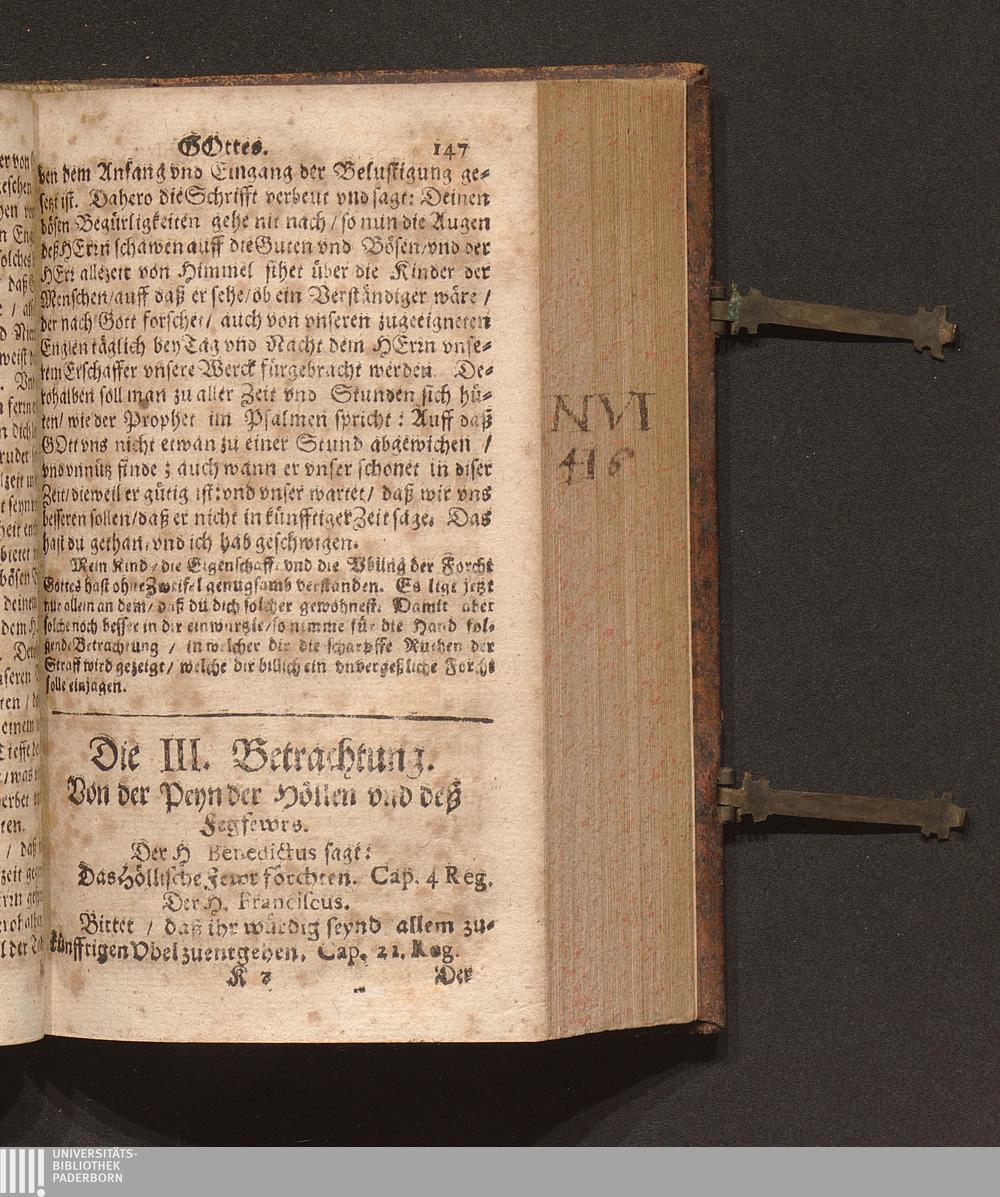 GOttes. 147
ben dem Anfang vnd Eingang der Belustigung ge-
setzt ist. Dahero die Schrifft verbeut vnd sagt: Deinen
bösen Begürligkeiten gehe nit nach / so nun die Augen
deß HErrn schawen auff die Guten vnd Bösen / vnd der
HErr allezeit von Himmel sihet über die Kinder der
Menschen / auff daß er sehe / ob ein Verständiger wäre /
der nach Gott forschet / auch von vnseren zugeeigneten
Englen täglich bey Tag vnd Nacht dem HErrn vnse-
rem Erschaffer vnsere Werck fürgebracht werden. De-
rohalben soll man zu aller Zeit vnd Stunden sich hü-
ten / wie der Prophet im Psalmen spricht: Auff daß
GOtt vns nicht etwan zu einer Stund abgewichen /
vnd vnnütz finde; auch wann er vnser schonet in diser
Zeit / dieweil er gütig ist: vnd vnser wartet / daß wir vns
besseren sollen / daß er nicht in künfftiger Zeit sage. Das
hast du gethan, vnd ich hab geschwigen.
Mein Kind / die Eigenschafft vnd die Vbung der Forcht
Gottes hast ohne Zweifel genugsamb verstanden. Es ligt jetzt
nur allein an dem / daß du dich solcher gewöhnest. Damit aber
solche noch besser in dir einwurzle / so nimme für die Hand fol-
gende Betrachtung / in welcher dir die scharpffe Ruthen der
Straff wird gezeigt / welche dir billich ein vnvergeßliche Forcht
solle einjagen.
Die III. Betrachtung.
Von der Peyn der Höllen vnd deß
Fegfewrs.
Der H Benedictus sagt:
Das Höllische Fewr förchten. Cap. 4 Reg.
Der H. Franciscus.
Bittet / daß ihr würdig seynd allem zu-
künfftigen Vbel zuentgehen. Cap. 21. Reg.
K 2 Der
NVI
416
UNIVERSITÄTS-
BIBLIOTHEK
PADERBORN